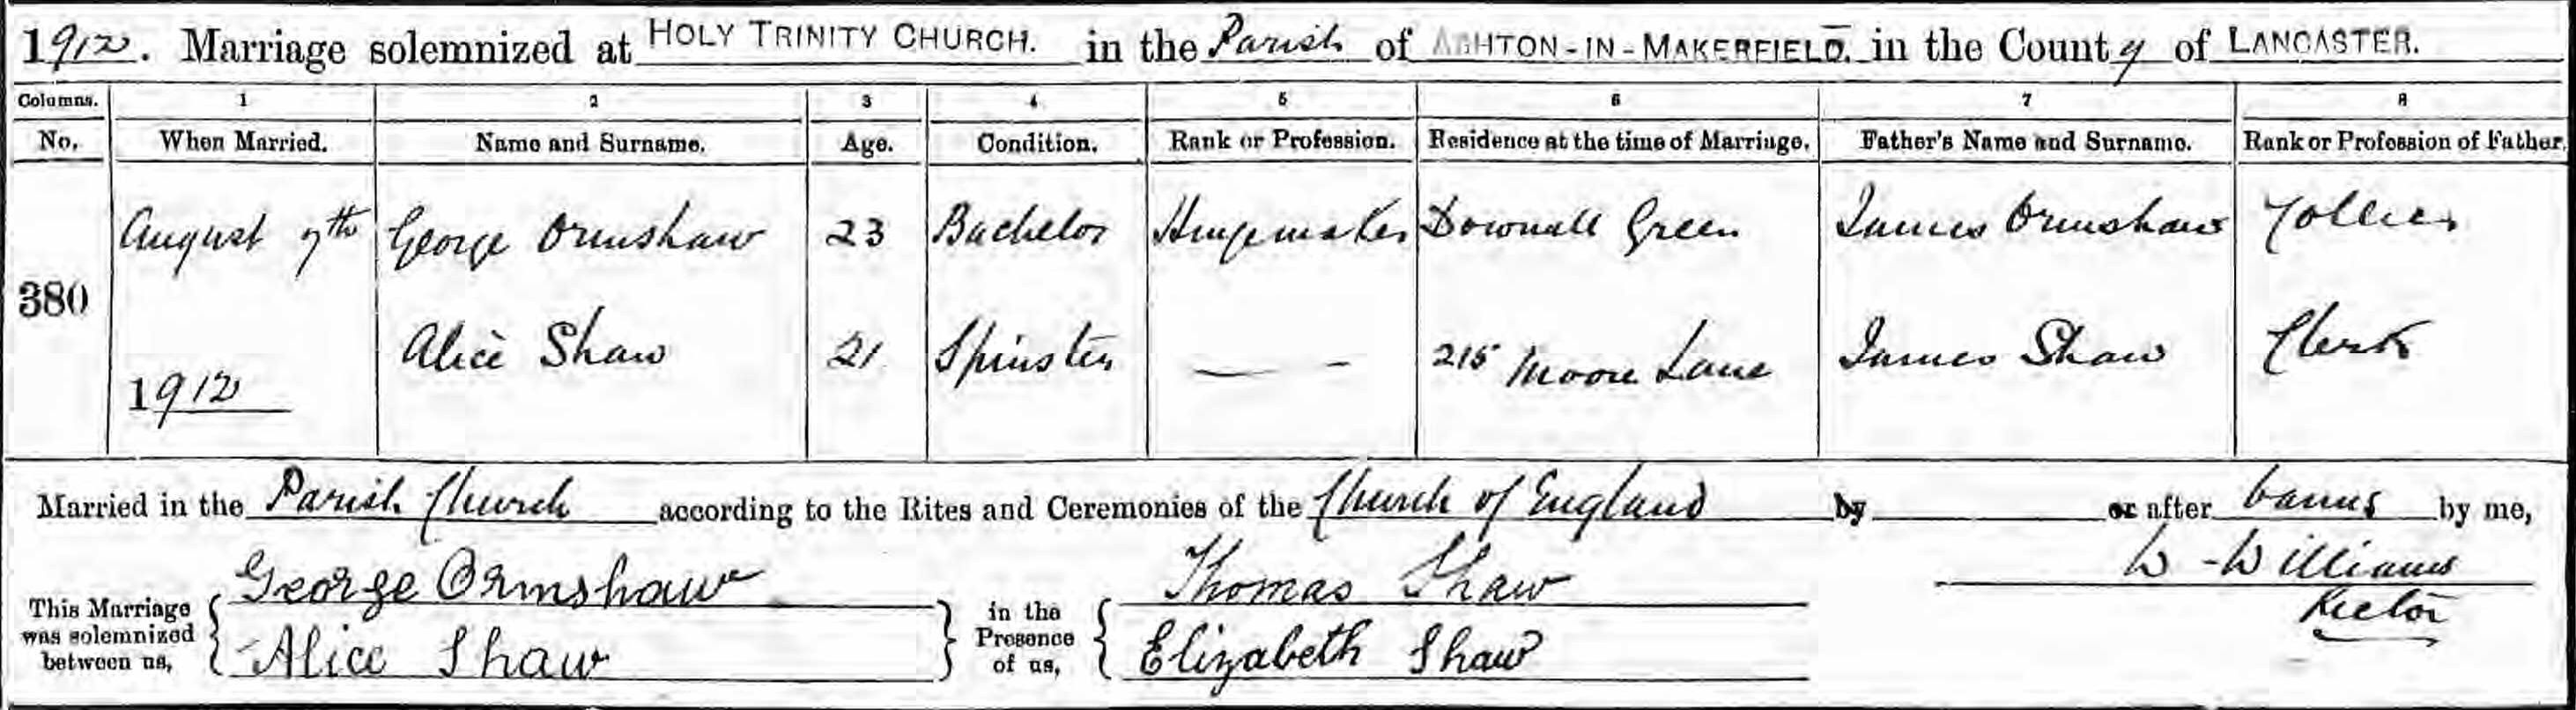 1912. Marriage solemnized at HOLY TRINITY CHURCH. in the Parish of ASHTON-IN-MAKERFIELD. in the County of LANCASTER.
Columns. 1 2 3 4 5 6 7 8
No. When Married. Name and Surname. Age. Condition. Rank or Profession. Residence at the time of Marriage. Father's Name and Surname. Rank or Profession of Father.
August 7th George Ormshaw 23 Bachelor Hingemaker Downall Green James Ormshaw Collier
380
Alice Shaw 21 Spinster — - 215 Moore Lane James Shaw Clerk
1912
Married in the Parish Church according to the Rites and Ceremonies of the Church of England by or after banns by me,
George Ormshaw Thomas Shaw W-Williams
This Marriage was solemnized between us, in the Presence of us, Rector
Alice Shaw Elizabeth Shaw